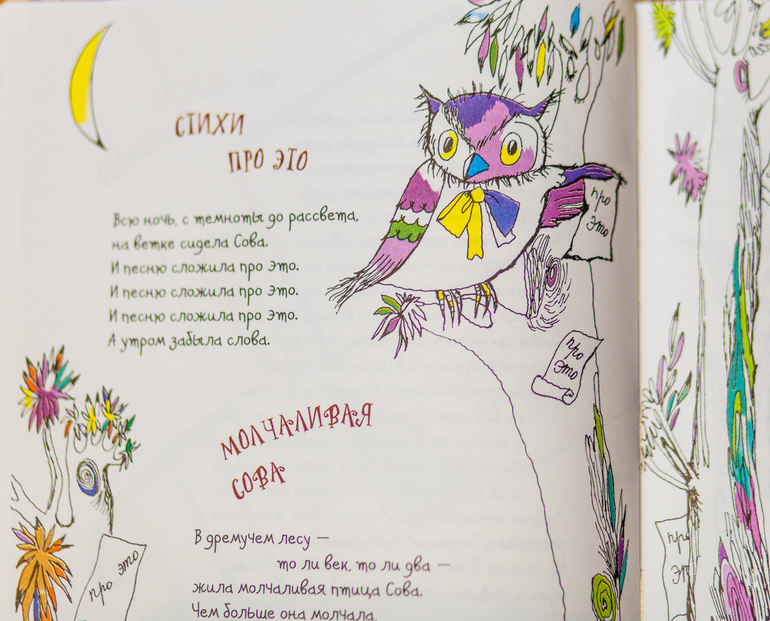 СТИХИ
ПРО ЭТО
Всю ночь, с темноты до рассвета,
на ветке сидела Сова.
И песню сложила про Это.
И песню сложила про Это.
И песню сложила про Это.
А утром забыла слова.
про
Это
про
Это
МОЛЧАЛИВАЯ
СОВА
В дремучем лесу —
то ли век, то ли два —
жила молчаливая птица Сова.
Чем больше она молчала,
про Это
про
Это